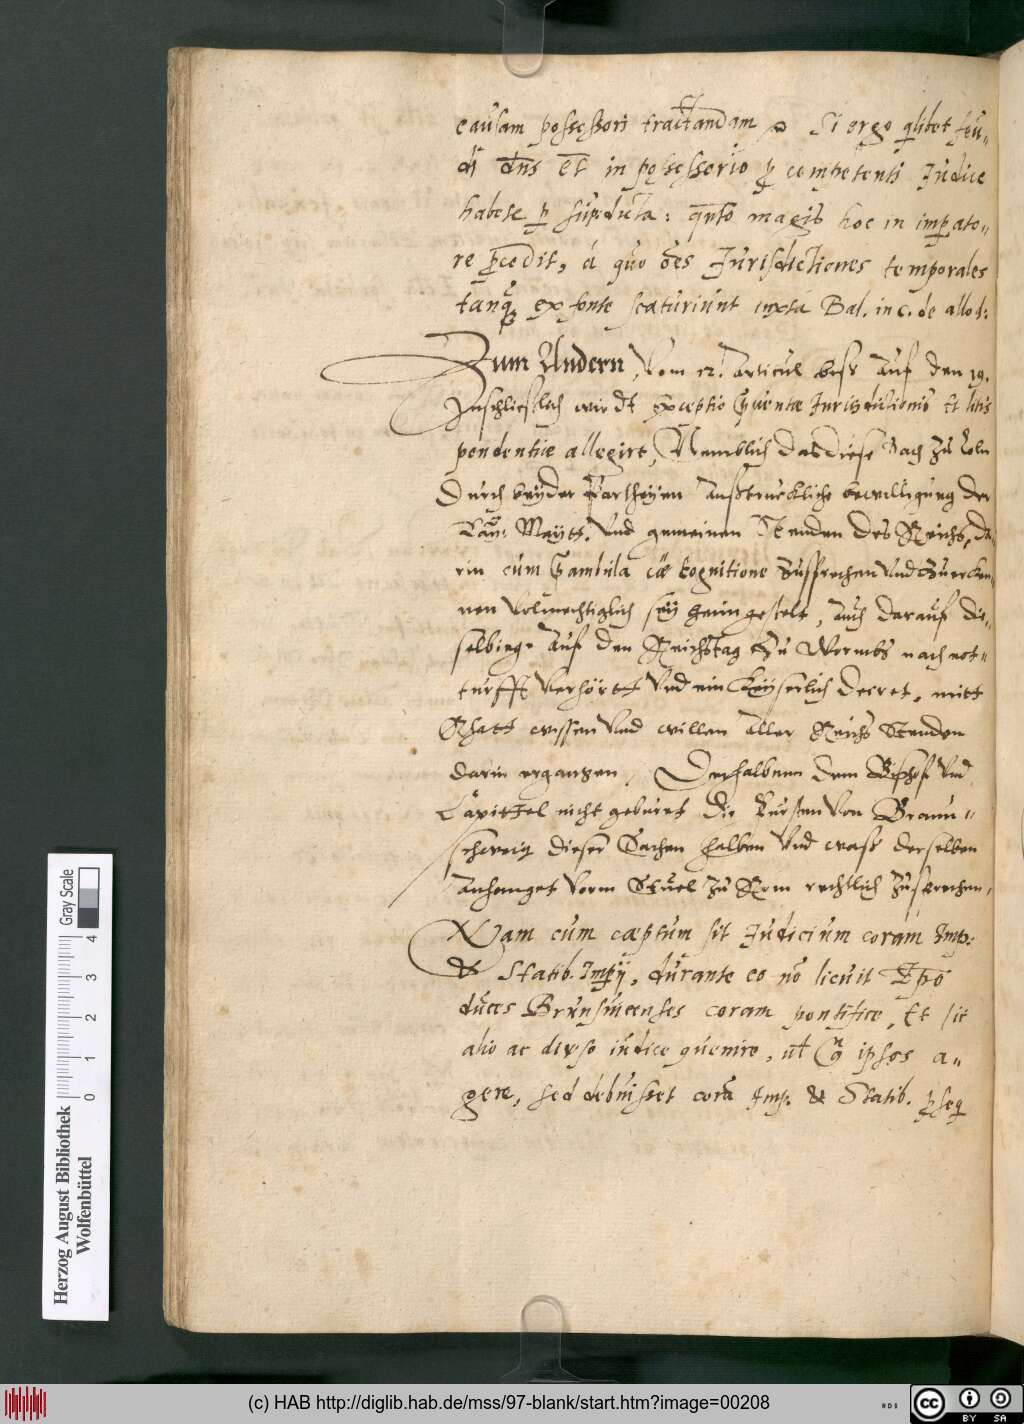 causam possessori tractandam Si ergo qlibet feu„
di dns est in possessorio p competenti Judice
habere p supdicta: qnto magis hoc in impato„
re pcedit, á quo oes Jurisdictiones temporales
tanq ex fonte scaturiunt iuxta Bal. in c. de allod:
Zum Andern, Vom 12. Articul biss auf den 19.
Inschliesslich wirdt Exceptio Jurisdictionis et litis
pendentiæ allegirt, Nemblich das diese sach zu
durch beyder Partheyen ausstruckliche bewilligung der
Kay: Maytt. Vnd gemeinen Stenden des Reichs, da„
rin cum cognitione Zusprechen Vnd Zuerken„
nen Volmechtiglich sey heimgestelt, auch darauf die„
selbige auf den Reichstag Zu Wormbs nach not„
turfft Verhörtt Vnd ein Keyserlich Decret, mitt
Rhatt wissen Vnd willen aller Reichs Stenden
darin ergangen, Derhalben dem Bischof Vnd
Capittel nicht geburet die Fursten Von Braun„
schweig dieser Sachen halben Vnd wass derselben
anhenget Vorm Stuel Zu Rom rechtlich Zusprechen,
Nam cum cæptum sit Judicium coram Imp:
& Statib. Impij, durante eo no licuit Epo
duces Brunsuicenses coram pontifice, Et sic
alio ac diuso iudice quenire, ut ipsos a„
gere, sed debuisset cora Imp. & Statib. pseq
Herzog August Bibliothek
Wolfenbüttel
0 1 2 3 4
Gray Scale
(c) HAB http://diglib.hab.de/mss/97-blank/start.htm?image=00208
cc BY SA